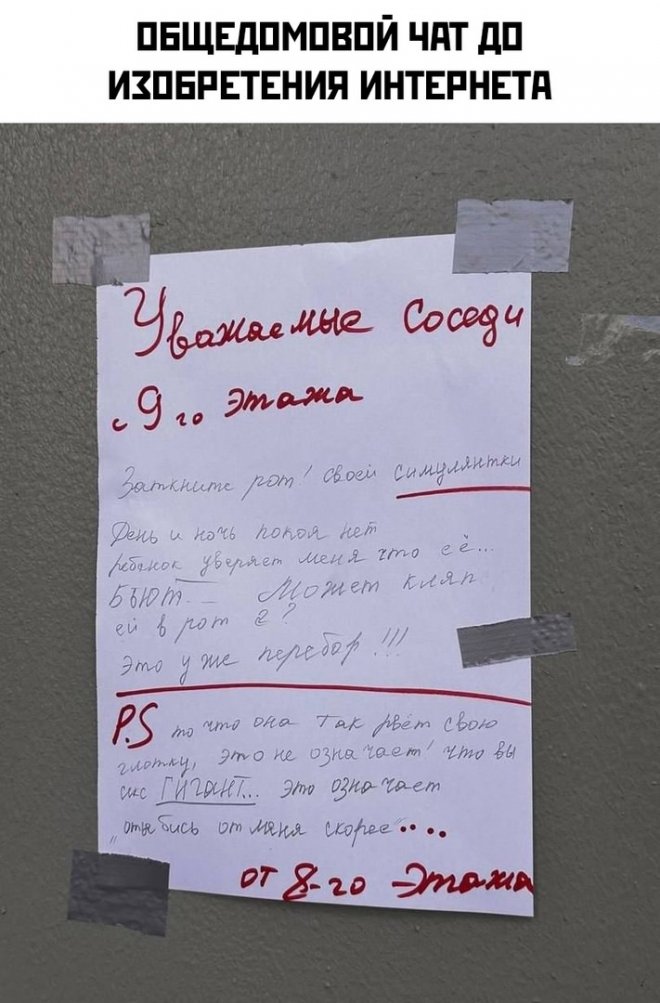 ОБЩЕДОМОВОЙ ЧАТ ДО
ИЗОБРЕТЕНИЯ ИНТЕРНЕТА
Уважаемые Соседи
с 9 го Этажа
Заткните рот! своей симулянтки
День и ночь покоя нет
ребёнок уверяет меня что её...
БЬЮТ... Может кляп
ей в рот ?
Это уже перебор!!!
P.S то что она так рвёт свою
глотку, это не означает! что вы
секс ГИГАНТ... Это означает
"отъебись от меня скорее"....
от 8-го Этажа